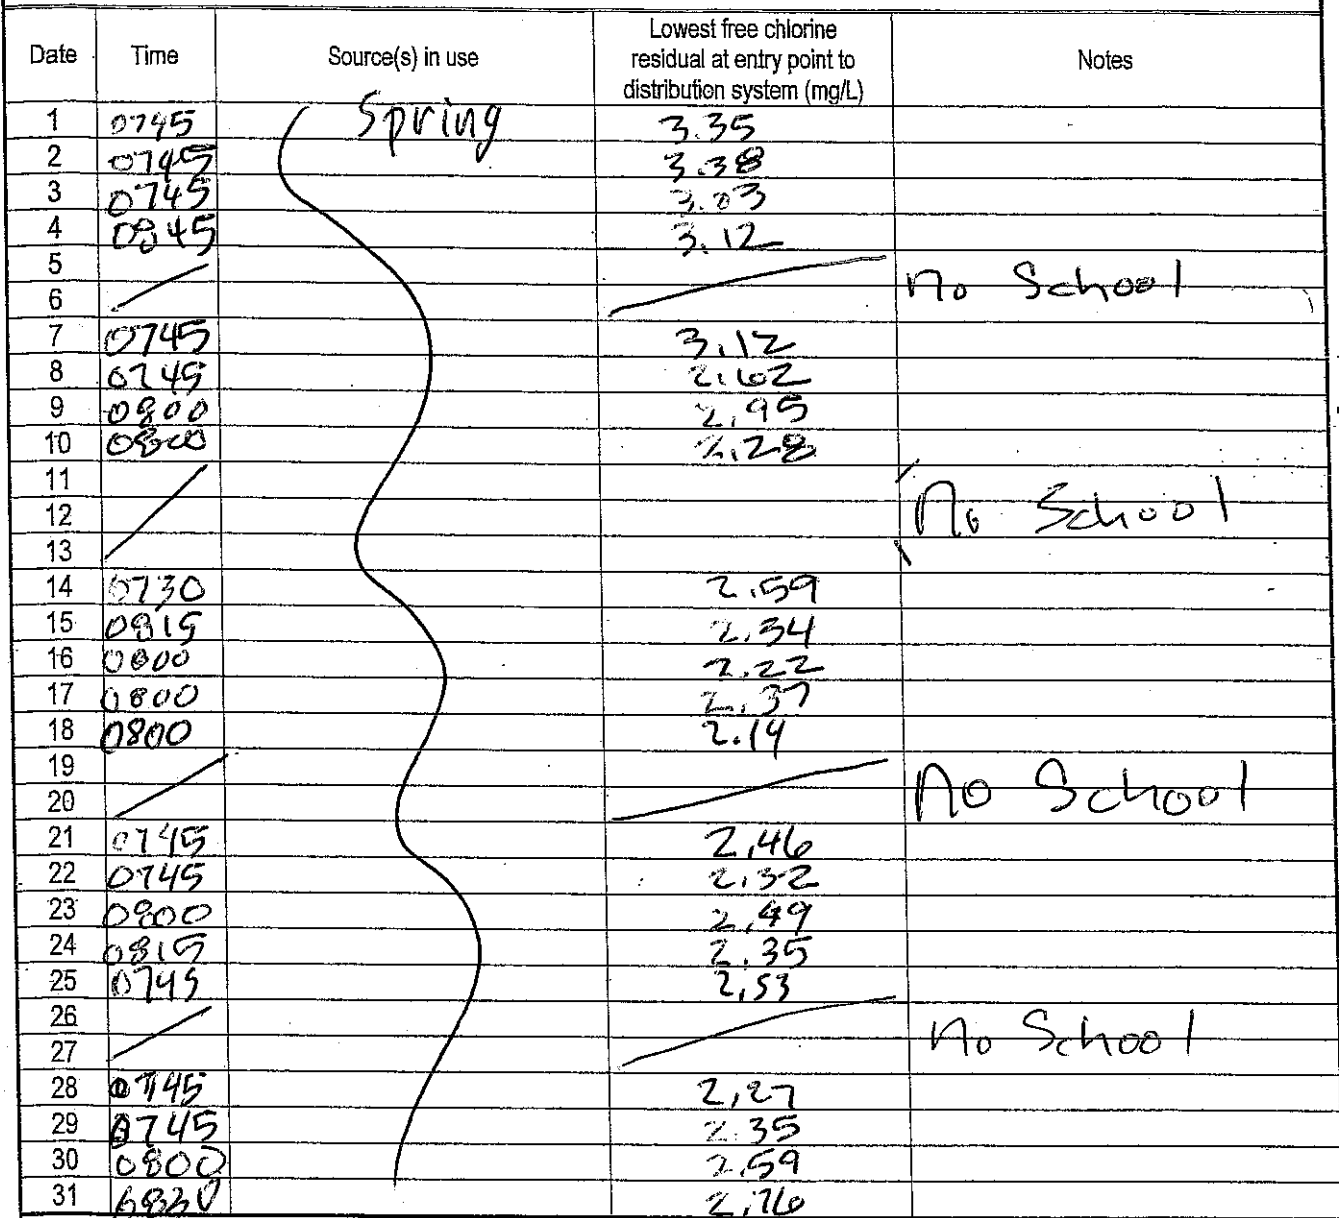 Date Time Source(s) in use Lowest free chlorine residual at entry point to distribution system (mg/L) Notes
1 0745 Spring 3.35
2 0745 3.38
3 0745 3.03
4 0845 3.12
5
6 No School
7 0745 3.12
8 0745 2.62
9 0800 2.95
10 0800 2.28
11
12 No School
13
14 0730 2.59
15 0815 2.34
16 0800 2.22
17 0800 2.37
18 0800 2.14
19
20 No School
21 0745 2.46
22 0745 2.32
23 0800 2.49
24 0815 2.35
25 0745 2.53
26
27 No School
28 0745 2.27
29 0745 2.35
30 0800 2.59
31 0830 2.76